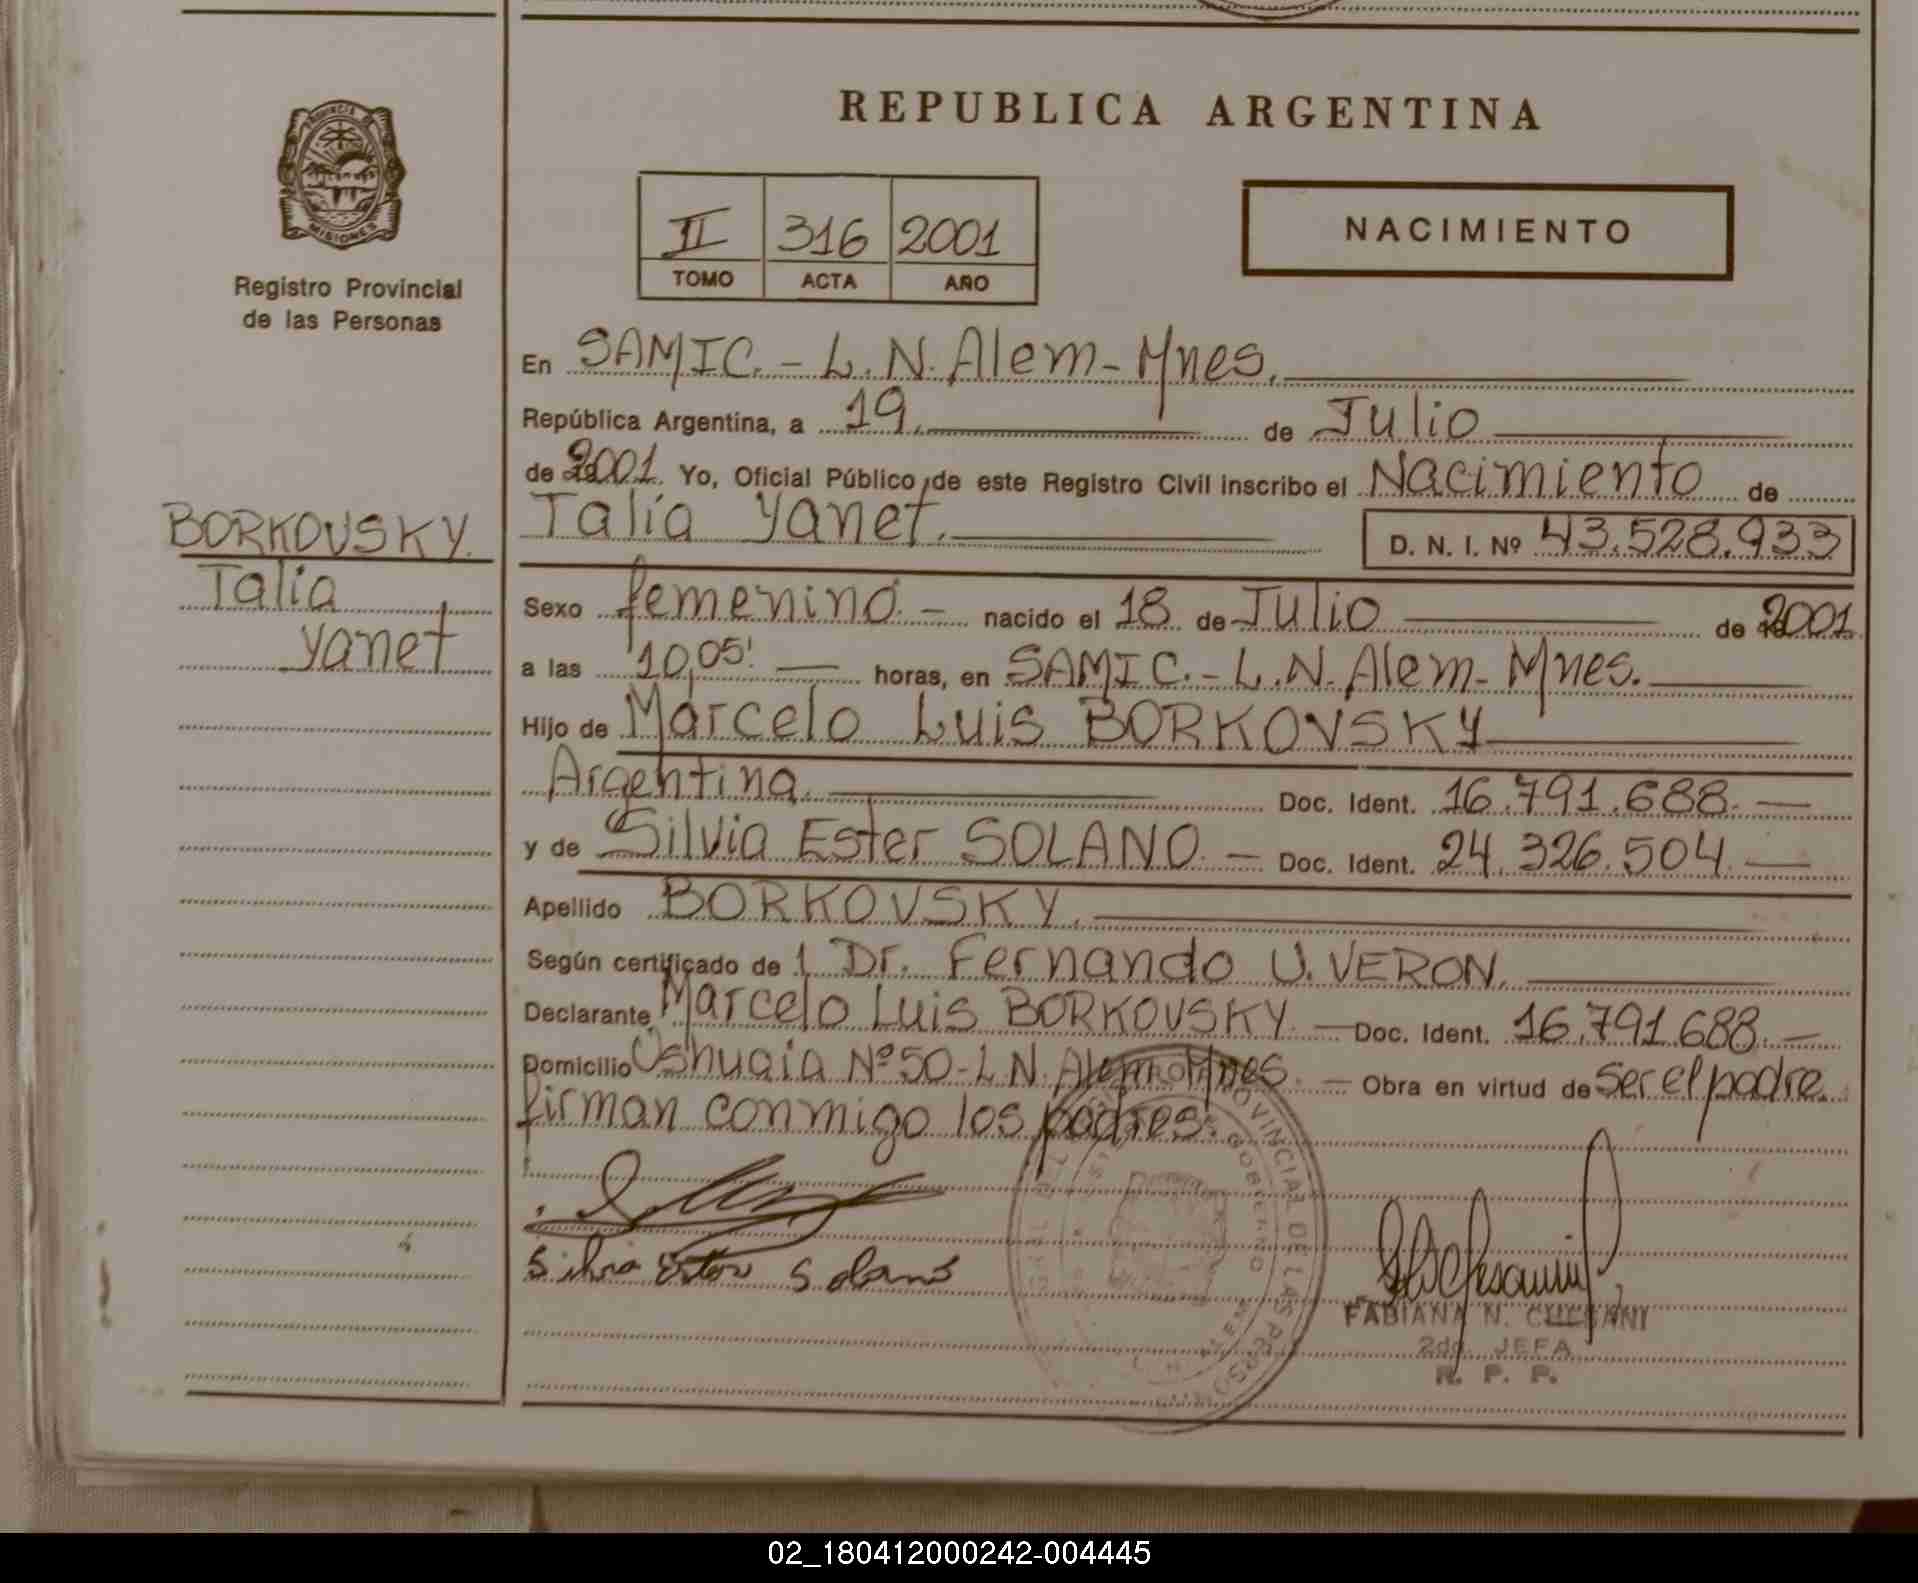 REPUBLICA ARGENTINA
PROVINCIA DE
MISIONES
Registro Provincial
de las Personas
II 316 2001
TOMO ACTA AÑO
NACIMIENTO
En SAMIC.- L.N. Alem- Mnes.
República Argentina, a 19. de Julio
de 2001. Yo, Oficial Público de este Registro Civil inscribo el Nacimiento de
Talía Yanet. D. N. I. Nº 43.528.933
BORKOVSKY.
Talía
Yanet
Sexo femenino.- nacido el 18 de Julio de 2001
a las 10,05' horas, en SAMIC.- L.N. Alem- Mnes.
Hijo de Marcelo Luis BORKOVSKY
Argentina. Doc. Ident. 16.791.688.-
y de Silvia Ester SOLANO.- Doc. Ident. 24.326.504.-
Apellido BORKOVSKY.
Según certificado de 1 Dr. Fernando U. VERON.
Declarante Marcelo Luis BORKOVSKY.- Doc. Ident. 16.791.688.-
Domicilio Ushuaia Nº 50- L N. Alem- Mnes.- Obra en virtud de Ser el padre.
firman conmigo los padres.
Silvia Ester Solano
PROVINCIAL DE LAS PERSO
GOBIERNO
FABIANA N. CHESANI
2da. JEFA
R. P. P.
02_180412000242-004445